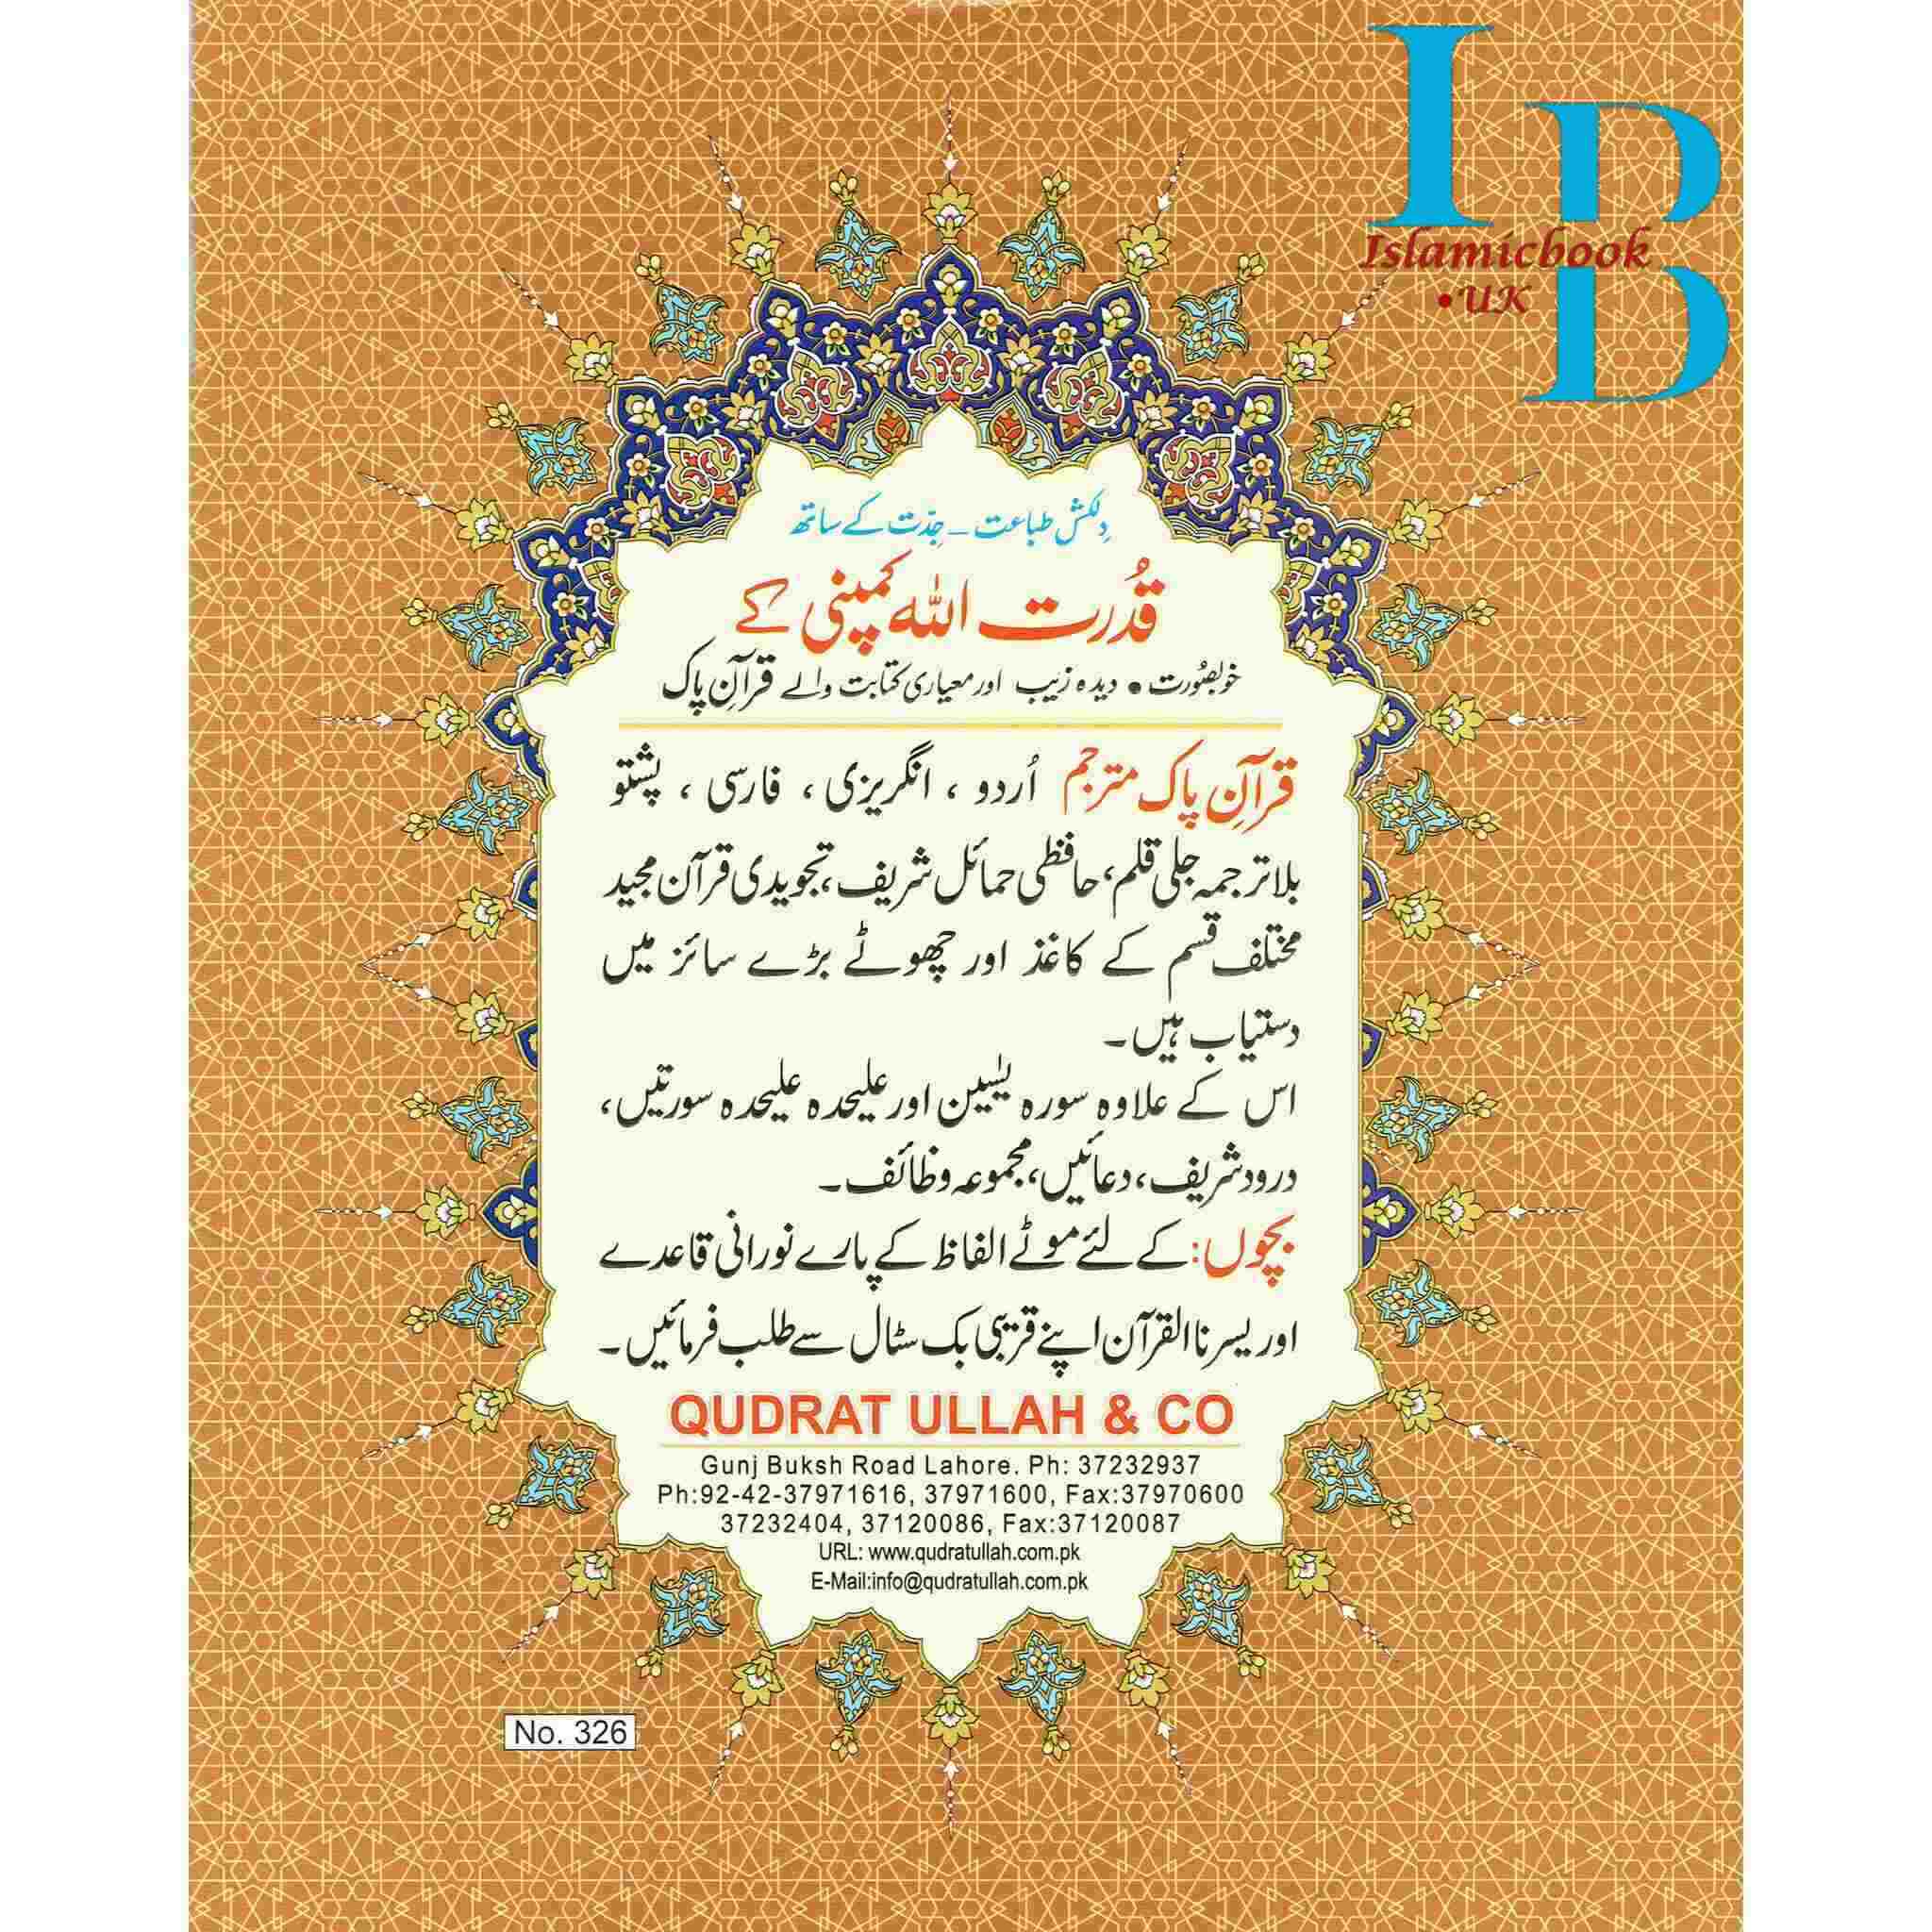 I
B
Islamicbook
.UK
دِلکش طباعت ـ جِدّت کے ساتھ
قُدرت اللہ کمپنی کے
خوبصُورت • دیدہ زیب اور معیاری کتابت والے قرآنِ پاک
قرآنِ پاک مترجم اُردو ، انگریزی ، فارسی ، پشتو
بلا ترجمہ جلی قلم، حافظی حمائل شریف، تجویدی قرآن مجید
مختلف قسم کے کاغذ اور چھوٹے بڑے سائز میں
دستیاب ہیں۔
اس کے علاوہ سورہ یٰسین اور علیحدہ علیحدہ سورتیں،
درود شریف، دعائیں، مجموعہ وظائف۔
بچوں: کے لئے موٹے الفاظ کے پارے نورانی قاعدے
اور یسرنا القرآن اپنے قریبی بک سٹال سے طلب فرمائیں۔
QUDRAT ULLAH & CO
Gunj Buksh Road Lahore. Ph: 37232937
Ph:92-42-37971616, 37971600, Fax:37970600
37232404, 37120086, Fax:37120087
URL: www.qudratullah.com.pk
E-Mail:info@qudratullah.com.pk
No. 326